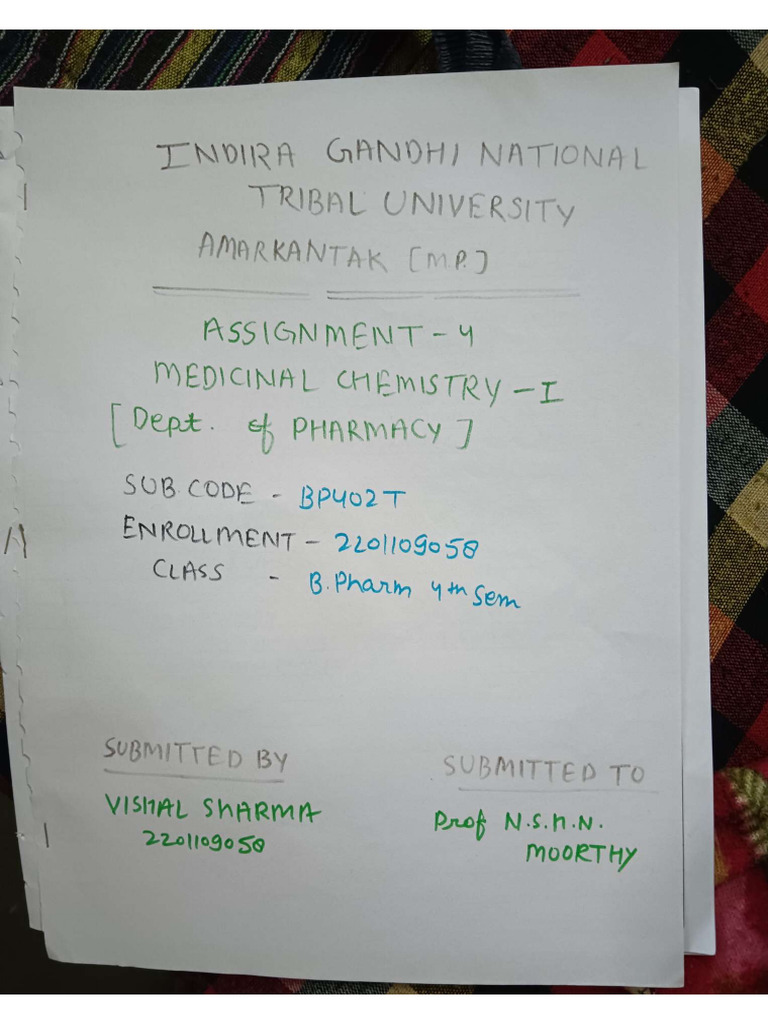 INDIRA GANDHI NATIONAL
TRIBAL UNIVERSITY
AMARKANTAK [M.P.]
ASSIGNMENT - 4
MEDICINAL CHEMISTRY - I
[Dept. of PHARMACY]
SUB. CODE - BP402T
ENROLLMENT - 2201109058
CLASS - B. Pharm 4th Sem
SUBMITTED BY
SUBMITTED TO
VISHAL SHARMA
2201109058
Prof N.S.H.N.
MOORTHY